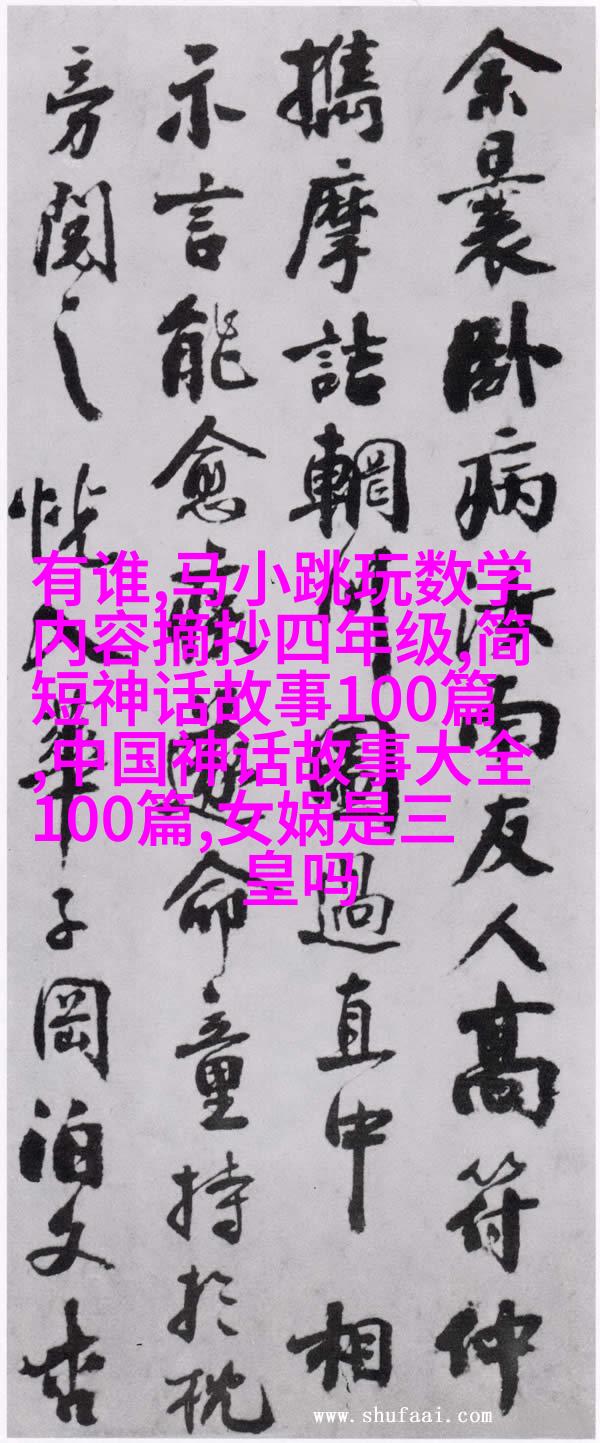 余曩卧病汝南友人高符仲
攜摩詰輞川圖過直中相
示言能愈疾遂命童持於枕
旁閱之恍入華子岡泊文杏
有谁,马小跳玩数学
内容摘抄四年级,简
短神话故事100篇
,中国神话故事大全
100篇,女娲是三
皇吗
www.shufaai.com